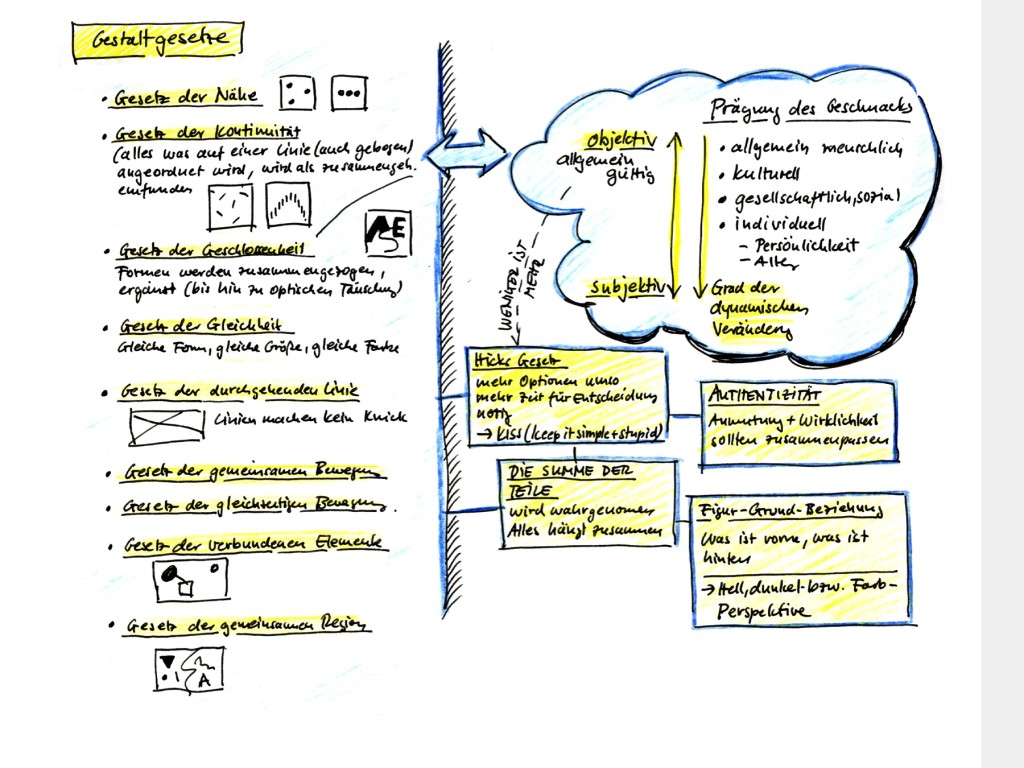 Gestaltgesetze
• Gesetz der Nähe
• Gesetz der Kontinuität
(alles was auf einer Linie (auch gebogen)
angeordnet wird, wird als zusammengeh.
empfunden
• Gesetz der Geschlossenheit
Formen werden zusammengezogen,
ergänzt (bis hin zu optischen Täuschung)
• Gesetz der Gleichheit
Gleiche Form, gleiche Größe, gleiche Farbe
• Gesetz der durchgehenden Linie
Linien machen kein Knick
• Gesetz der gemeinsamen Bewegung
• Gesetz der gleichzeitigen Bewegung.
• Gesetz der verbundenen Elemente
• Gesetz der gemeinsamen Region
A
Prägung des Geschmacks
Objektiv
allgemein
gültig
Subjektiv
• allgemein menschlich
• kulturell
• gesellschaftlich, sozial
• individuell
– Persönlichkeit
– Alter
Grad der
dynamischen
Veränderg
WENIGER IST
MEHR
Hicks Gesetz
mehr Optionen umso
mehr Zeit für Entscheidung
nötig
→ KISS (keep it simple + stupid)
AUTHENTIZITÄT
Anmutung + Wirklichkeit
sollten zusammenpassen
DIE SUMME DER
TEILE
wird wahrgenomen
Alles hängt zusammen
Figur-Grund-Beziehung
Was ist vorne, was ist
hinten
→ Hell, dunkel- bzw. Farb-
Perspektive